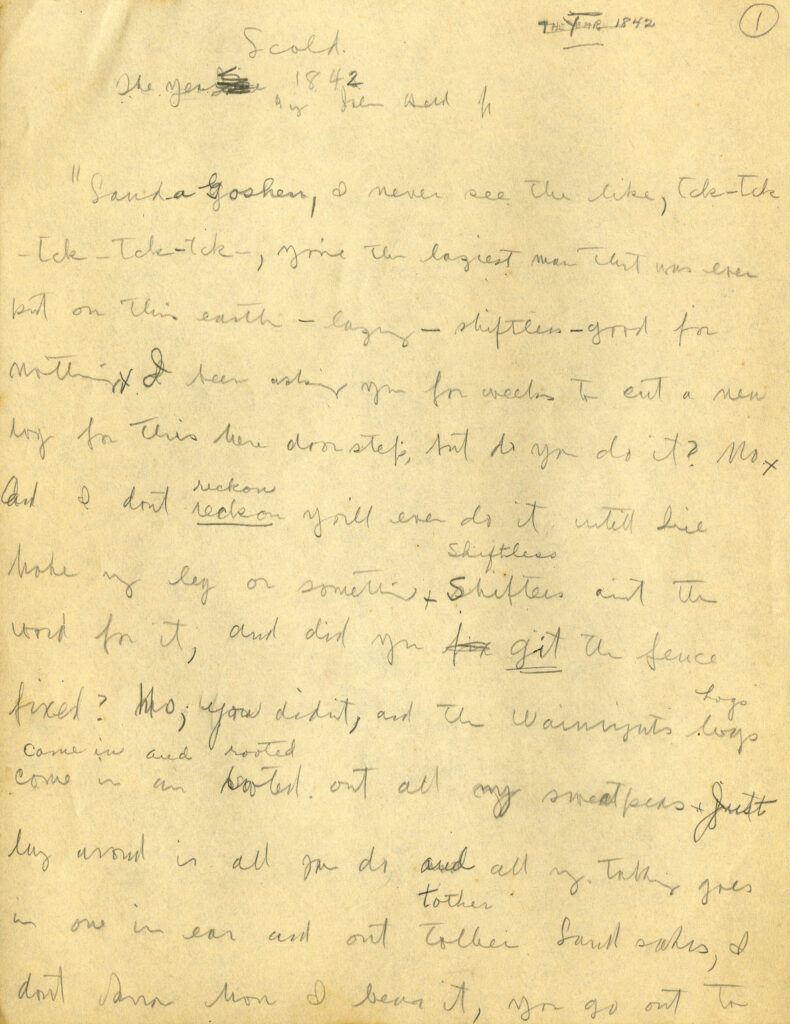 THE YEAR 1842
1
Scold.
The year 1842
By
"Sand-a Goshen, I never see the like, tck-tck
-tck-tck-tck-, you're the laziest man that was ever
put on this earth - lazy - shiftless - good for
nothing x I been asking you for weeks to cut a new
log for this here door step, but do you do it? No x
And I dont reckon you'll ever do it until I've
reckon
broke my leg or somethin x Shiftless aint the
shiftless
word for it, and did you fix git the fence
fixed? No, you didn't, and the Wainrights hogs
hogs
come in an rooted out all my sweatpeas x Just
came in and rooted
lay around is all you do and all my talking goes
in one in ear and out tother Land sakes, I
tother
dont know how I bear it, you go out to